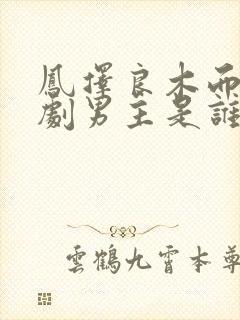 鳳擇良木而
劇男主是誰
雲鶴九霄本尊